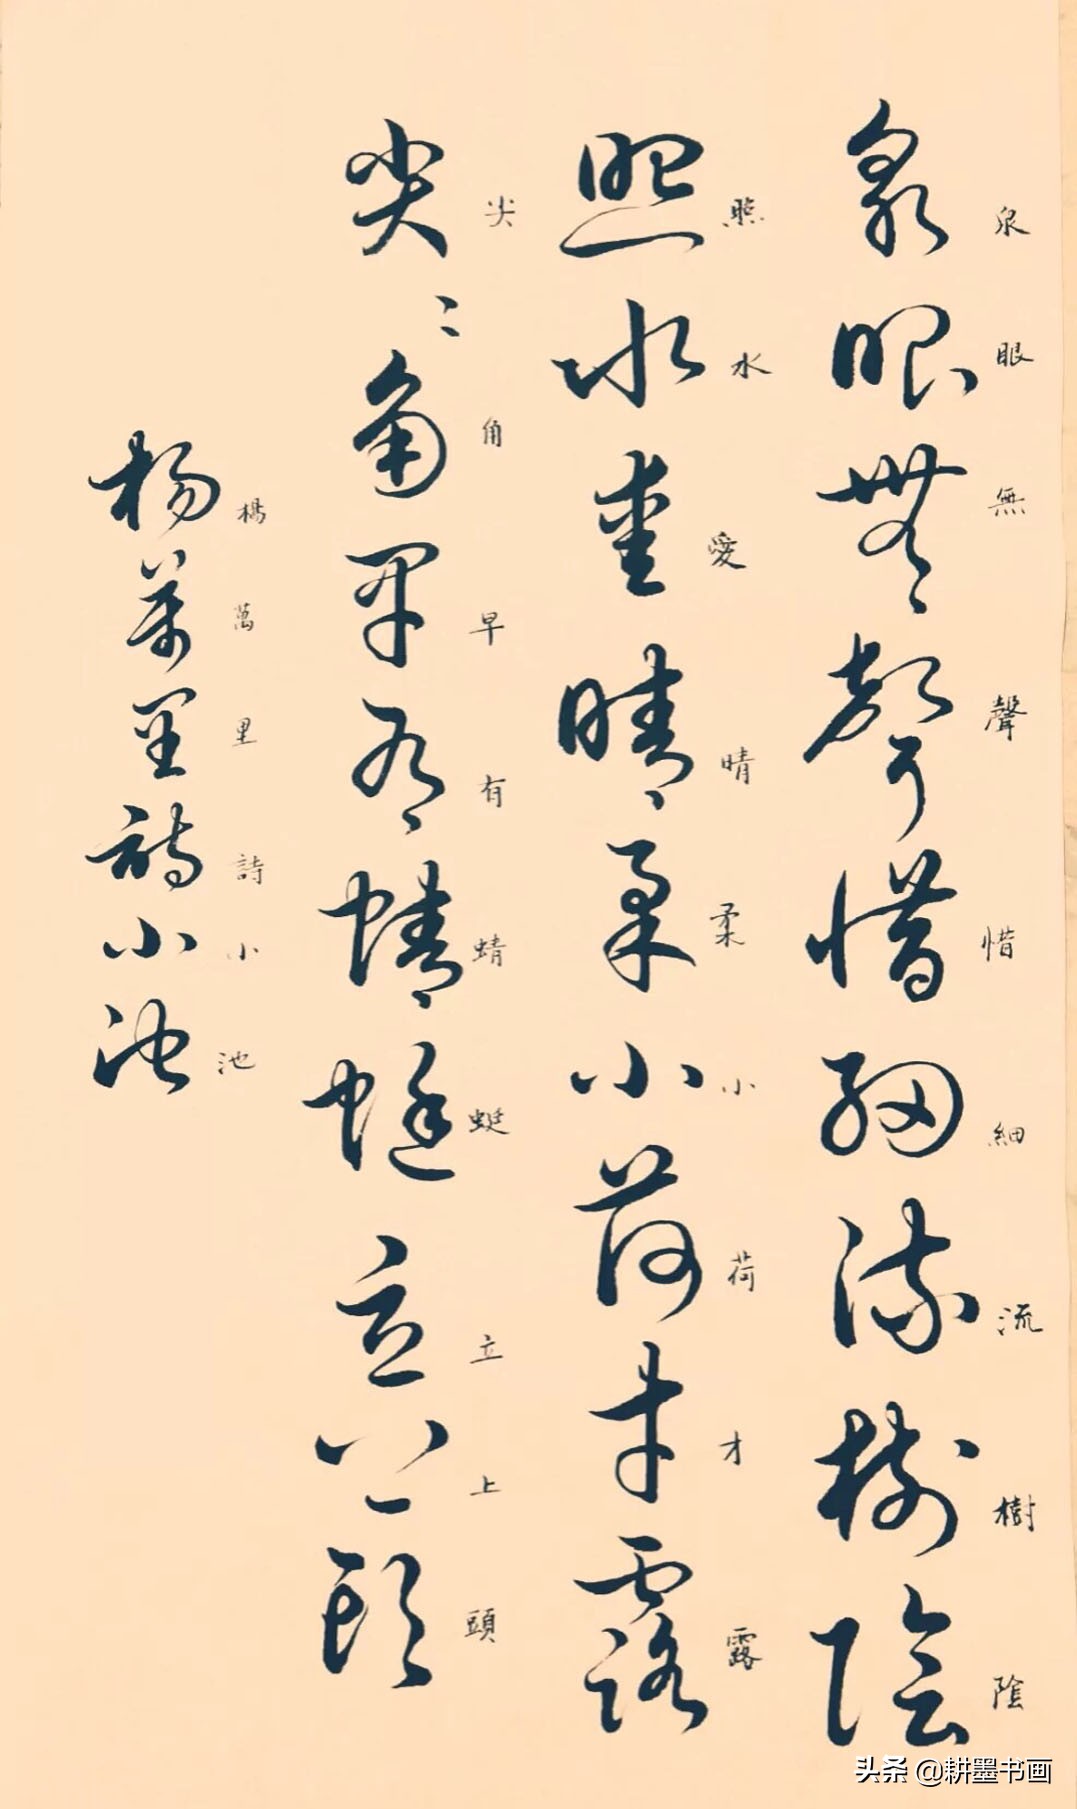 泉眼無聲惜細流樹陰
泉眼無聲惜細流樹陰
照水愛晴柔小荷才露
照水愛晴柔小荷才露
尖角早有蜻蜓立上頭
尖〻角早有蜻蜓立上頭
楊萬里詩小池
楊萬里詩小池
头条 @耕墨书画